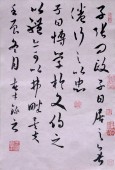 子張問政子曰居之無
倦行之以忠
子曰博學於文約之
以禮亦可以弗畔矣夫
壬辰冬月